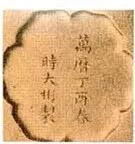 萬曆丁酉春
時大彬製